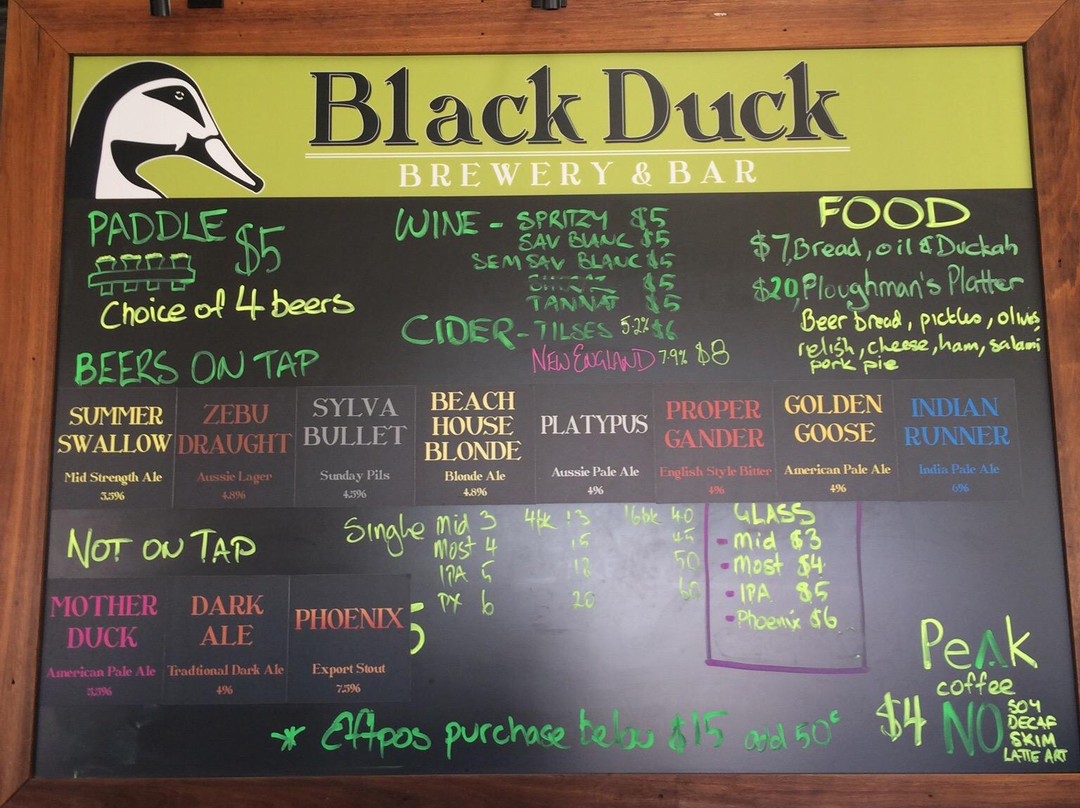 Black Duck
BREWERY & BAR
PADDLE $5
Choice of 4 beers
WINE - SPRITZY $5
SAV BLANC $5
SEM SAV BLANC $5
SHIRAZ $5
TANNAT $5
CIDER - TILSES 5.2% $6
NEW ENGLAND 7.9% $8
FOOD
$7, Bread, oil & Duckah
$20, Ploughman's Platter
Beer bread, pickles, olives
relish, cheese, ham, salami
pork pie
BEERS ON TAP
SUMMER
SWALLOW
Mid Strength Ale
3.5%
ZEBU
DRAUGHT
Aussie Lager
4.8%
SYLVA
BULLET
Sunday Pils
4.5%
BEACH
HOUSE
BLONDE
Blonde Ale
4.8%
PLATYPUS
Aussie Pale Ale
4%
PROPER
GANDER
English Style Bitter
4%
GOLDEN
GOOSE
American Pale Ale
4%
INDIAN
RUNNER
India Pale Ale
6%
NOT ON TAP
MOTHER
DUCK
American Pale Ale
3.5%
DARK
ALE
Tradtional Dark Ale
4%
PHOENIX
Export Stout
7.5%
5
Single Mid 3 4pk 13 16pk 40
Most 4 15 45
IPA 5 18 50
PX 6 20 60
GLASS
- Mid $3
- Most $4
- IPA $5
- Phoenix $6
Peak
coffee
$4 NO SOY
DECAF
SKIM
LATTE ART
* Eftpos purchase below $15 add 50c